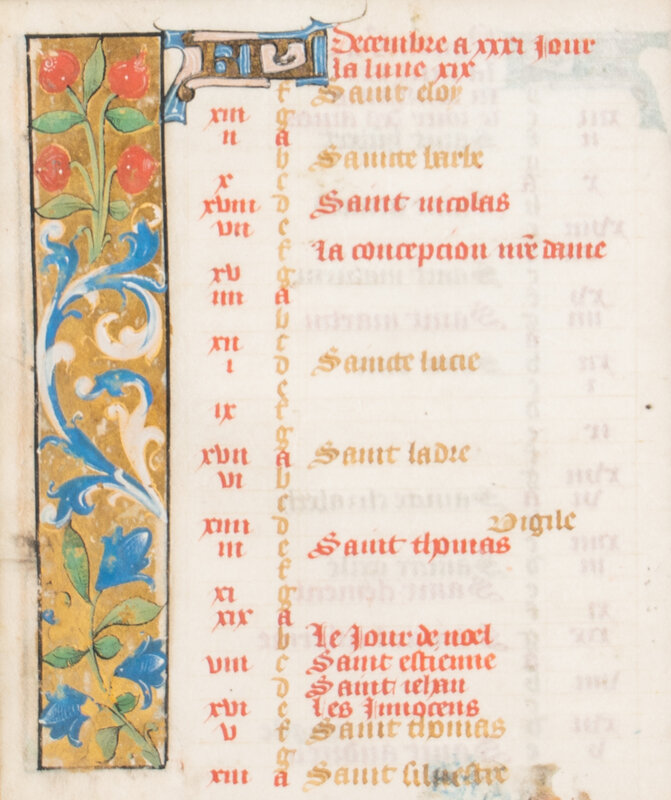 KL Decembre a xxxi Jour
la lune xix
f Saint eloy
xiii g
ii a
b Saincte barbe
x c
xviii d Saint nicolas
vii e
f la concepcion nr̄e dame
xv g
iiii a
b
xii c
i d Saincte lucie
e
ix f
g
xvii a Saint ladre
vi b
c
xiiii d Vigile
iii e Saint thomas
f
xi g
xix a
b le Jour de noel
viii c Saint estienne
d Saint iehan
xvi e les Innocens
v f Saint thomas
g
xiii a Saint silvestre